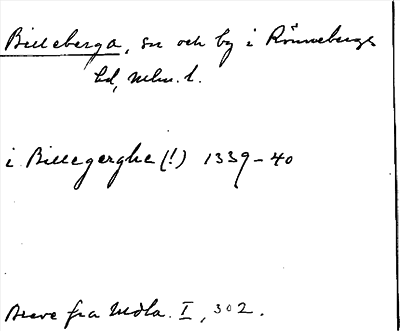 Billeberga, sn och by i Rönnebergs
hd, Mlm. l.
i Billegerghe (!) 1339-40
Breve fra Mdla. I, 302.